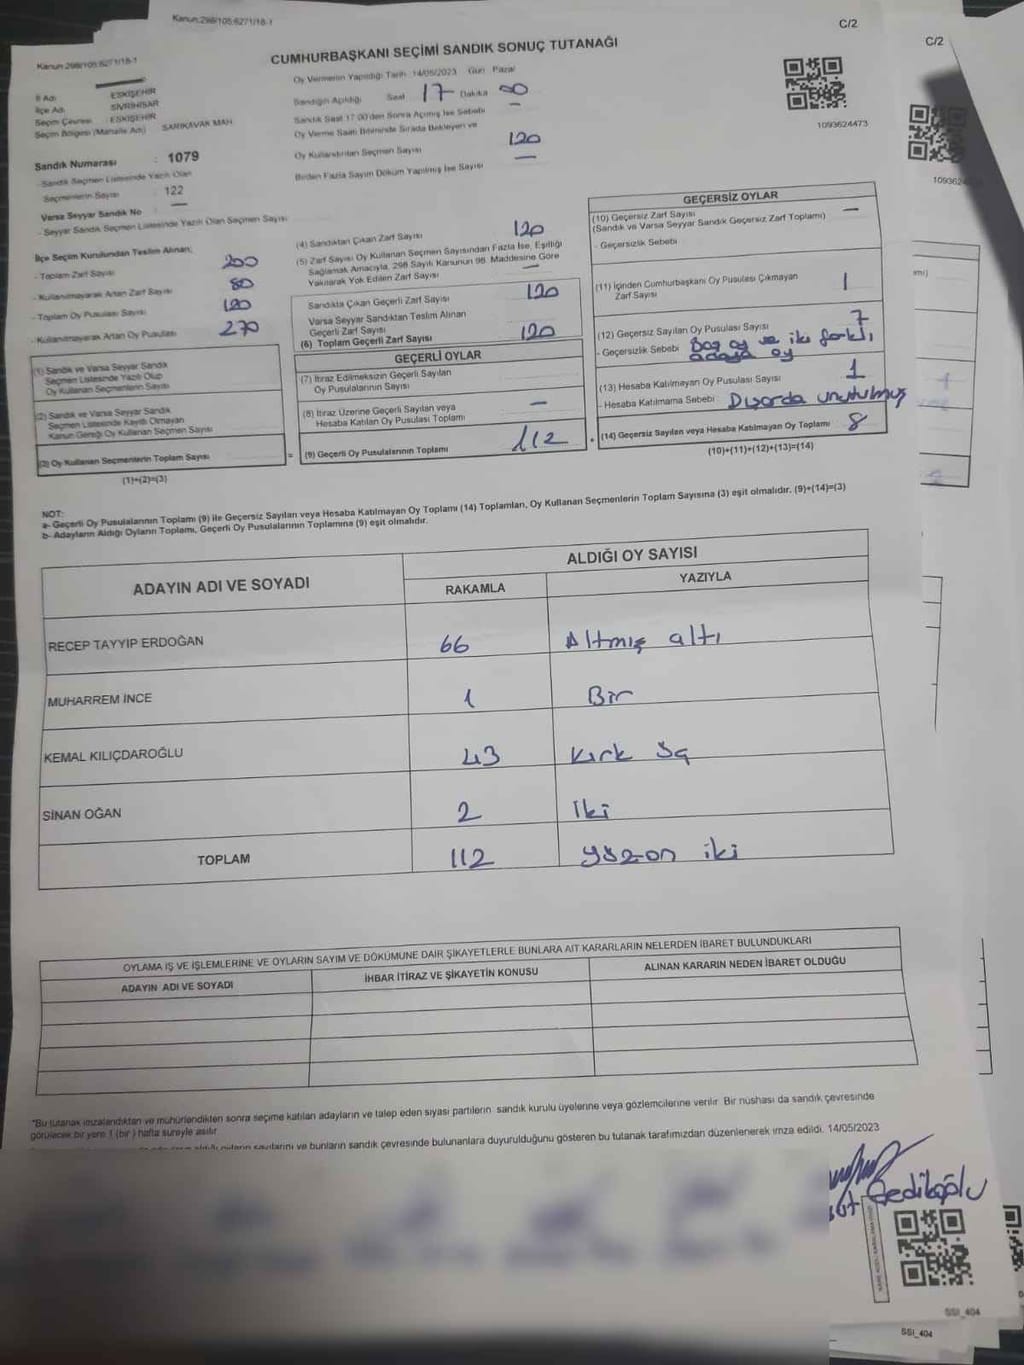 Kanun:298/105:6271/18-1
C/2
C/2
Kanun:298/105:6271/18-1
CUMHURBAŞKANI SEÇİMİ SANDIK SONUÇ TUTANAĞI
Oy Vermenin Yapıldığı Tarih :14/05/2023 Gün : Pazar
İl Adı : ESKİŞEHİR
İlçe Adı : SİVRİHİSAR
Seçim Çevresi : ESKİŞEHİR
Seçim Bölgesi (Mahalle Adı) SARIKAVAK MAH.
Sandık Numarası : 1079
- Sandık Seçmen Listesinde Yazılı Olan
Seçmenlerin Sayısı : 122
Varsa Seyyar Sandık No —
- Seyyar Sandık Seçmen Listesinde Yazılı Olan Seçmen Sayısı
Sandığın Açıldığı Saat 17 Dakika 00
Sandık Saat 17.00'den Sonra Açılmış İse Sebebi —
Oy Verme Saati Bitiminde Sırada Bekleyen ve
Oy Kullandırılan Seçmen Sayısı 120
Birden Fazla Sayım Döküm Yapılmış İse Sayısı —
1093624473
1093624
İlçe Seçim Kurulundan Teslim Alınan;
- Toplam Zarf Sayısı 200
- Kullanılmayarak Artan Zarf Sayısı 80
- Toplam Oy Pusulası Sayısı 120
- Kullanılmayarak Artan Oy Pusulası 270
(1) Sandık ve Varsa Seyyar Sandık
Seçmen Listesinde Yazılı Olup
Oy Kullanan Seçmenlerin Sayısı
(2) Sandık ve Varsa Seyyar Sandık
Seçmen Listesinde Kayıtlı Olmayan
Kanun Gereği Oy Kullanan Seçmen Sayısı
(3) Oy Kullanan Seçmenlerin Toplam Sayısı
(1)+(2)=(3)
(4) Sandıktan Çıkan Zarf Sayısı 120
(5) Zarf Sayısı Oy Kullanan Seçmen Sayısından Fazla İse, Eşitliği
Sağlamak Amacıyla, 298 Sayılı Kanunun 98. Maddesine Göre
Yakılarak Yok Edilen Zarf Sayısı
Sandıkta Çıkan Geçerli Zarf Sayısı 120
Varsa Seyyar Sandıktan Teslim Alınan
Geçerli Zarf Sayısı
(6) Toplam Geçerli Zarf Sayısı 120
GEÇERLİ OYLAR
(7) İtiraz Edilmeksizin Geçerli Sayılan
Oy Pusulalarının Sayısı
(8) İtiraz Üzerine Geçerli Sayılan veya
Hesaba Katılan Oy Pusulası Toplamı —
= (9) Geçerli Oy Pusulalarının Toplamı 112
GEÇERSİZ OYLAR
(10) Geçersiz Zarf Sayısı —
(Sandık ve Varsa Seyyar Sandık Geçersiz Zarf Toplamı)
- Geçersizlik Sebebi
(11) İçinden Cumhurbaşkanı Oy Pusulası Çıkmayan
Zarf Sayısı 1
(12) Geçersiz Sayılan Oy Pusulası Sayısı 7
- Geçersizlik Sebebi Boş oy ve iki farklı
adaya oy
(13) Hesaba Katılmayan Oy Pusulası Sayısı 1
- Hesaba Katılmama Sebebi Dışarda unutulmuş
+ (14) Geçersiz Sayılan veya Hesaba Katılmayan Oy Toplamı 8
(10)+(11)+(12)+(13)=(14)
NOT:
a- Geçerli Oy Pusulalarının Toplamı (9) ile Geçersiz Sayılan veya Hesaba Katılmayan Oy Toplamı (14) Toplamları, Oy Kullanan Seçmenlerin Toplam Sayısına (3) eşit olmalıdır. (9)+(14)=(3)
b- Adayların Aldığı Oyların Toplamı, Geçerli Oy Pusulalarının Toplamına (9) eşit olmalıdır.
ADAYIN ADI VE SOYADI
ALDIĞI OY SAYISI
RAKAMLA YAZIYLA
RECEP TAYYİP ERDOĞAN 66 Altmış altı
MUHARREM İNCE 1 Bir
KEMAL KILIÇDAROĞLU 43 Kırk üç
SİNAN OĞAN 2 İki
TOPLAM 112 yüzon iki
OYLAMA İŞ VE İŞLEMLERİNE VE OYLARIN SAYIM VE DÖKÜMÜNE DAİR ŞİKAYETLERLE BUNLARA AİT KARARLARIN NELERDEN İBARET BULUNDUKLARI
ADAYIN ADI VE SOYADI İHBAR İTİRAZ VE ŞİKAYETİN KONUSU ALINAN KARARIN NEDEN İBARET OLDUĞU
*Bu tutanak imzalandıktan ve mühürlendikten sonra seçime katılan adayların ve talep eden siyasi partilerin sandık kurulu üyelerine veya gözlemcilerine verilir. Bir nüshası da sandık çevresinde
görülecek bir yere 1 (bir) hafta süreyle asılır.
oyların sayılarını ve bunların sandık çevresinde bulunanlara duyurulduğunu gösteren bu tutanak tarafımızdan düzenlenerek imza edildi. 14/05/2023
Gedikoğlu
SSI_404
SSI_404